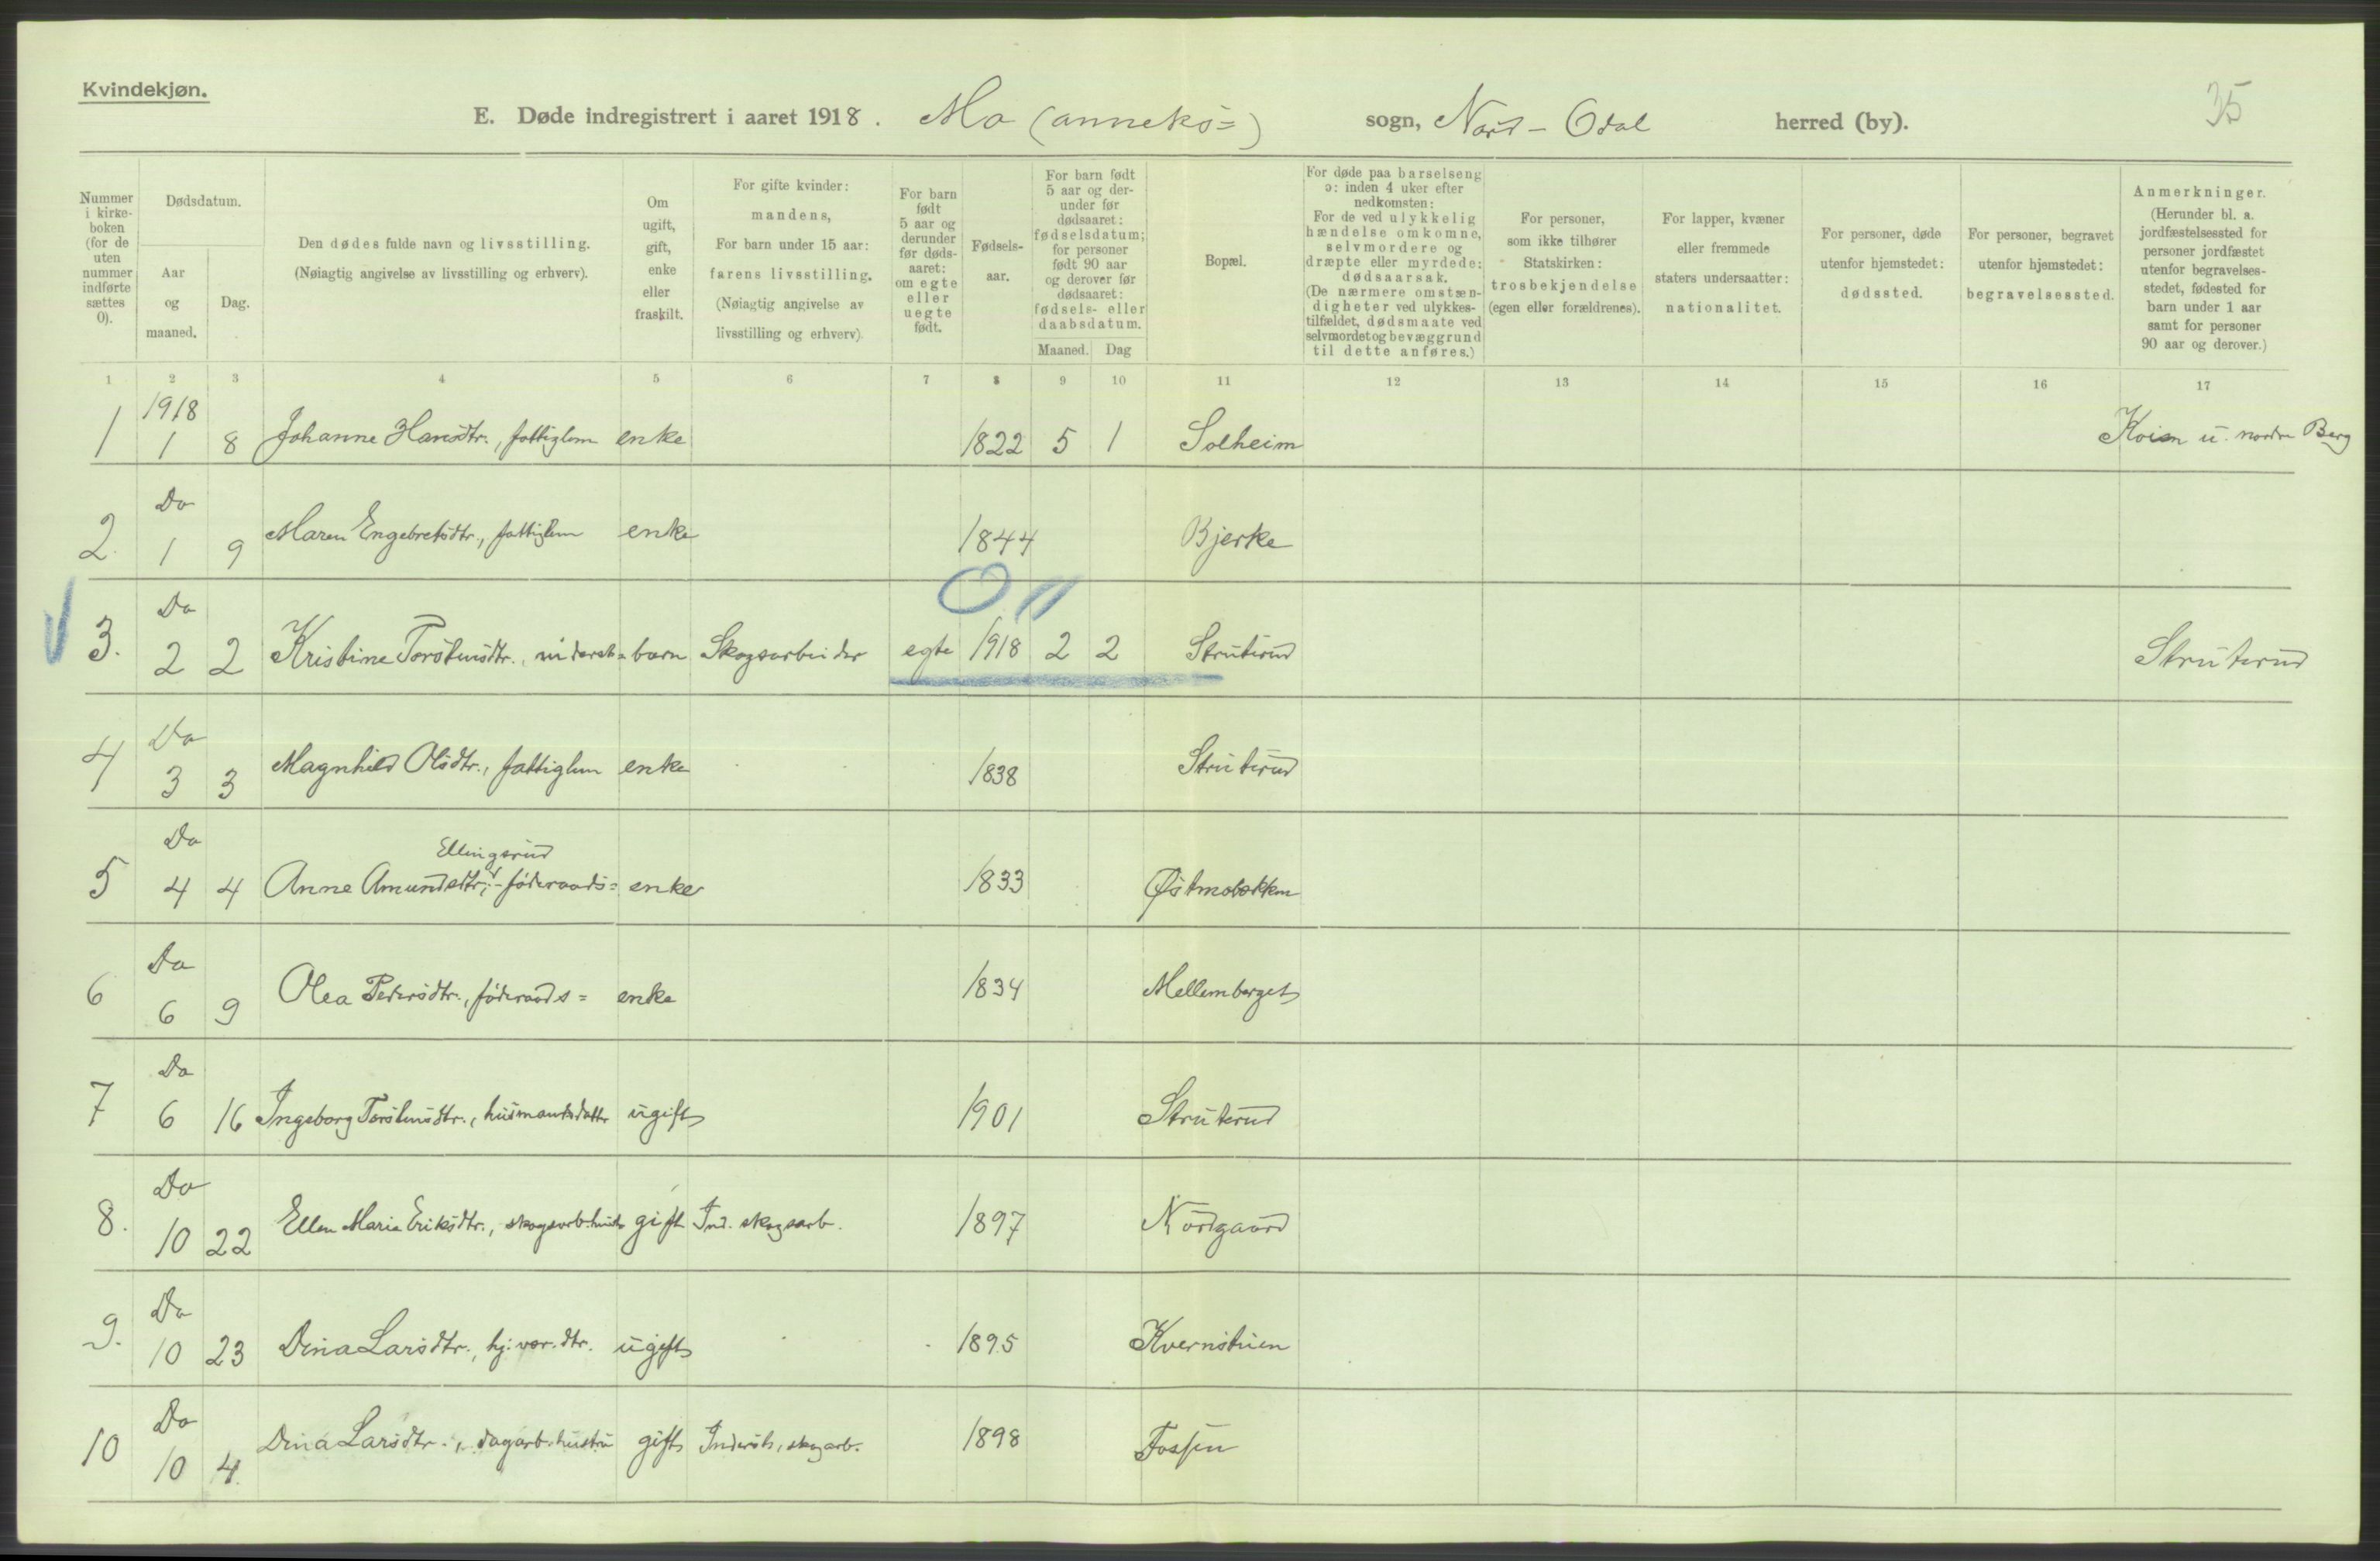 Kvindekjøn.
35
E. Døde indregistrert i aaret 1918. Mo (anneks=) sogn, Nord-Odal herred (by).
Nummer i kirke-boken (for de uten nummer indførte sættes 0).
Dødsdatum.
Aar og maaned.
Dag.
Den dødes fulde navn og livsstilling.
(Nøiagtig angivelse av livsstilling og erhverv).
Om ugift, gift, enke eller fraskilt.
For gifte kvinder: mandens, For barn under 15 aar: farens livsstilling. (Nøiagtig angivelse av livsstilling og erhverv).
For barn født 5 aar og derunder før døds-aaret: om egte eller uegte født.
Fødsels-aar.
For barn født 5 aar og der-under før dødsaaret: fødselsdatum; for personer født 90 aar og derover før dødsaaret: fødsels- eller daabsdatum.
Maaned. Dag
Bopæl.
For døde paa barselseng ɔ: inden 4 uker efter nedkomsten: For de ved ulykkelig hændelse omkomne, selvmordere og dræpte eller myrdede: dødsaarsak. (De nærmere omstæn-digheter ved ulykkes-tilfældet, dødsmaate ved selvmordet og bevæggrund til dette anføres.)
For personer, som ikke tilhører Statskirken: trosbekjendelse (egen eller forældrenes).
For lapper, kvæner eller fremmede staters undersaatter: nationalitet.
For personer, døde utenfor hjemstedet: dødssted.
For personer, begravet utenfor hjemstedet: begravelsessted.
Anmerkninger.
(Herunder bl. a. jordfæstelsessted for personer jordfæstet utenfor begravelses-stedet, fødested for barn under 1 aar samt for personer 90 aar og derover.)
1 2 3 4 5 6 7 8 9 10 11 12 13 14 15 16 17
1918
1 1 8 Johanne Hansdtr., fattiglem enke 1822 5 1 Solheim Koien u. nordre Berg
Do
2. 1 9 Maren Engebretsdtr., fattiglem enke 1844 Bjerke
Do
3. 2 2 Kristine Torstensdtr., inderst= barn Skogsarbeider egte 1918 2 2 Struterud Struterud
Do
4 3 3 Magnhild Olsdtr., fattiglem enke 1838 Struterud
Do
Ellingsrud
5 4 4 Anne Amundsdtr., føderaads= enke 1833 Østmobakken
Do
6 6 9 Olea Pedersdtr., føderaads= enke 1834 Mellemberget
Do
7 6 16 Ingeborg Torstensdtr., husmandsdatter ugift 1901 Struterud
Do
8. 10 22 Ellen Marie Eriksdtr., skogsarb.hustr gift Ind. skogsarb. 1897 Nordgaard
Do
9. 10 23 Dina Larsdtr., hj.vær.dtr. ugift 1895 Kvernstuen
Do
10 10 4. Dina Larsdtr., dagarb.hustru gift Inderst, skogarb. 1898 Fossen